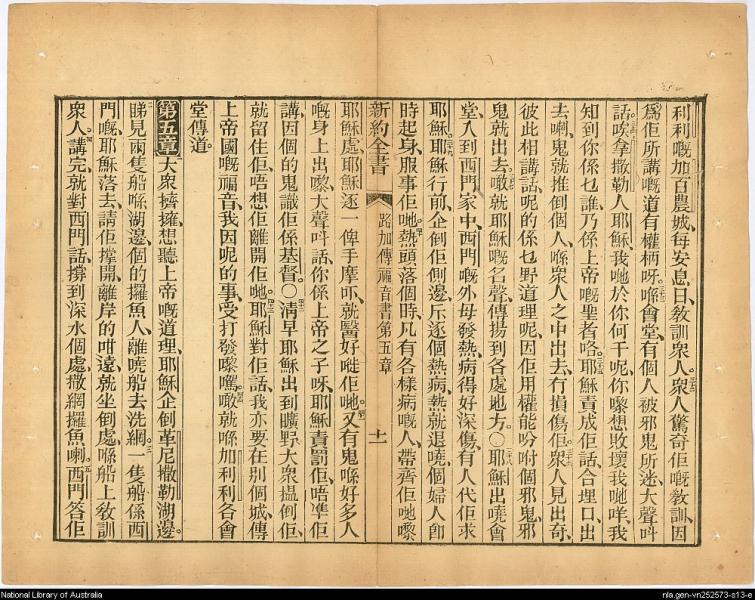 利利嘅加百農城、每安息日、敎訓衆人。衆人驚奇佢嘅敎訓、因
爲佢所講嘅道有權柄呀。喺會堂、有個人被邪鬼所迷、大聲呌
話、唉、拿撒勒人耶穌、我哋於你何干呢、你嚟想敗壞我哋咩、我
知到你係乜誰、乃係上帝嘅聖者咯。耶穌責成佢話、合埋口、出
去喇、鬼就推倒個人、喺衆人之中出去、冇損傷佢。衆人見出奇、
彼此相講話、呢的係乜野道理呢、因佢用權能吩咐個邪鬼、邪
鬼就出去。噉就耶穌嘅名聲、傳揚到各處地方。〇耶穌出嘵會
堂、入到西門家中、西門嘅外母發熱病得好深傷、有人代佢求
耶穌。耶穌行前、企倒佢側邊、斥逐個熱病、熱就退嘵、個婦人卽
時起身、服事佢哋。熱頭落個時、凡有各樣病嘅人、帶齊佢哋嚟
新約全書 路加傳福音書第五章 十一
耶穌處、耶穌逐一俾手摩吓、就醫好嗮佢哋。又有鬼喺好多人
嘅身上出嚟、大聲呌話、你係上帝之子呀、耶穌責罰佢、唔準佢
講、因個的鬼識佢係基督。〇清早耶穌出到曠野、大衆搵倒佢、
就留住佢、唔想佢離開佢哋。耶穌對佢話、我亦要在別個城、傳
上帝國嘅福音、我因呢的事、受打發嚟嘅。噉就喺加利利各會
堂傳道。
第五章 大衆擠擁、想聽上帝嘅道理、耶穌企倒革尼撒勒湖邊。
睇見兩隻船喺湖邊、個的攞魚人、離嘵船去洗網。一隻船係西
門嘅、耶穌落去、請佢撐開、離岸的咁遠、就坐倒處喺船上敎訓
衆人。講完、就對西門話、撐到深水個處、撒網攞魚喇。西門答佢
National Library of Australia
nla.gen-vn252573-s13-e